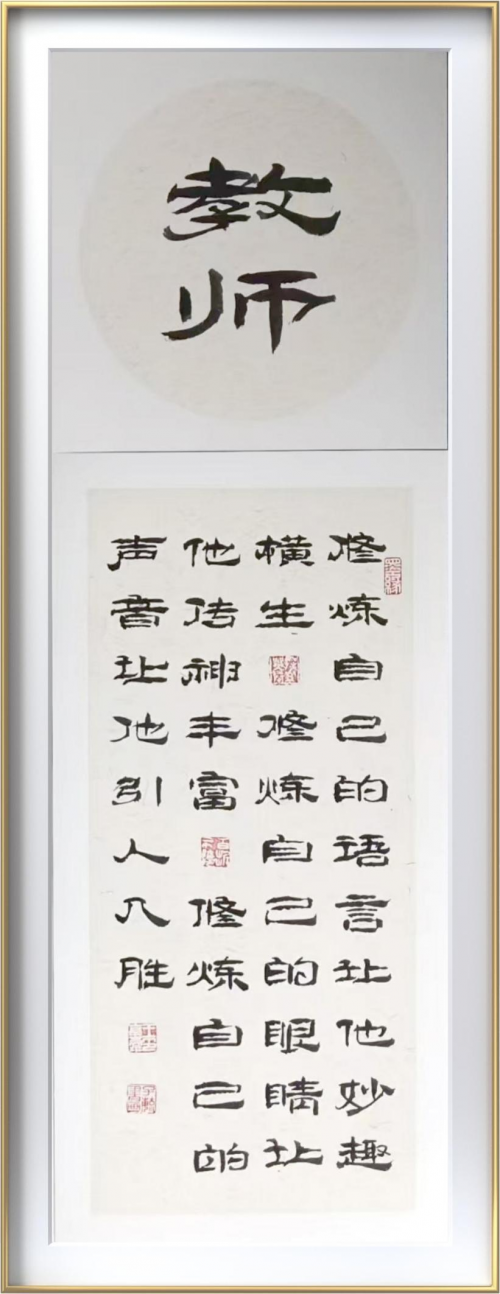 教
师
修炼自己的语言让他妙趣
横生 修炼自己的眼睛让
他传神丰富 修炼自己的
声音让他引人入胜